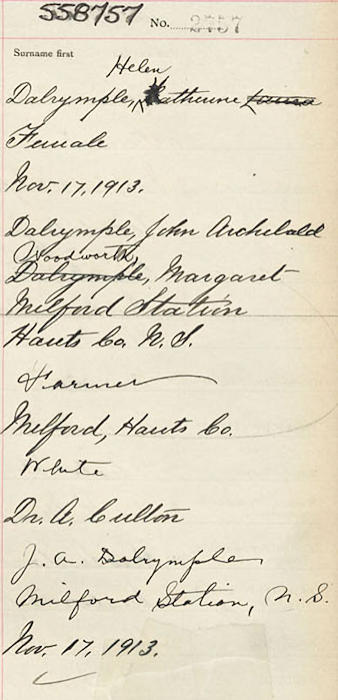 558757
No. 2757
Surname first
Helen
Dalrymple, Katherine Laura
Female
Nov. 17, 1913.
Dalrymple, John Archibald
Woodworth,
Dalrymple, Margaret
Milford Station
Hants Co. N. S.
Farmer
Milford, Hants Co.
White
Dr. A. Culton
J. A. Dalrymple
Milford Station, N. S.
Nov. 17, 1913.